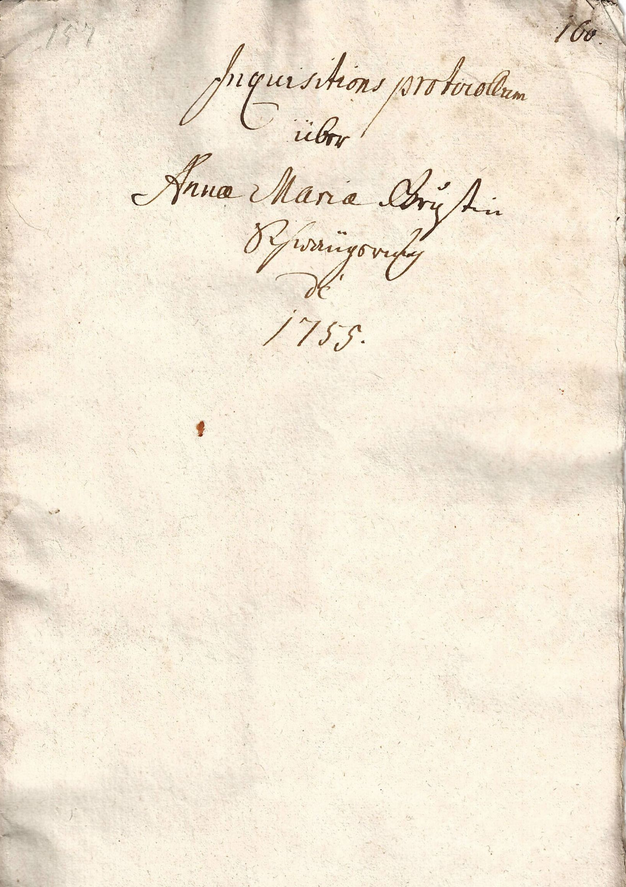 157
160.
Inquisitions protocollum
über
Annæ Mariæ Brÿstin
Schwängerung
de
1755.